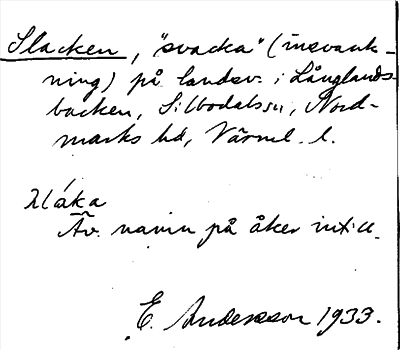 Slacken, "svacka" (insvank-
ning) på landsv. i Långlands-
backen, Silbodals sn, Nord-
marks hd, Värml. l.
Äv. namn på åker intill.
E. Andersson 1933.